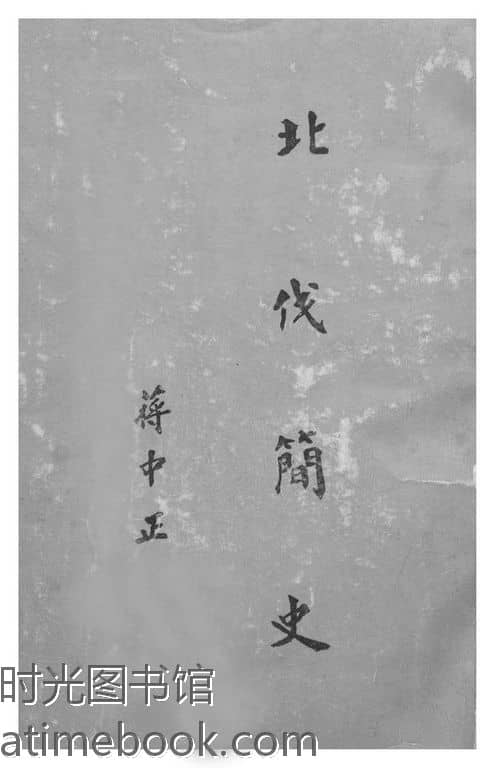 北伐簡史
蔣中正
时光图书馆
atimebook.com